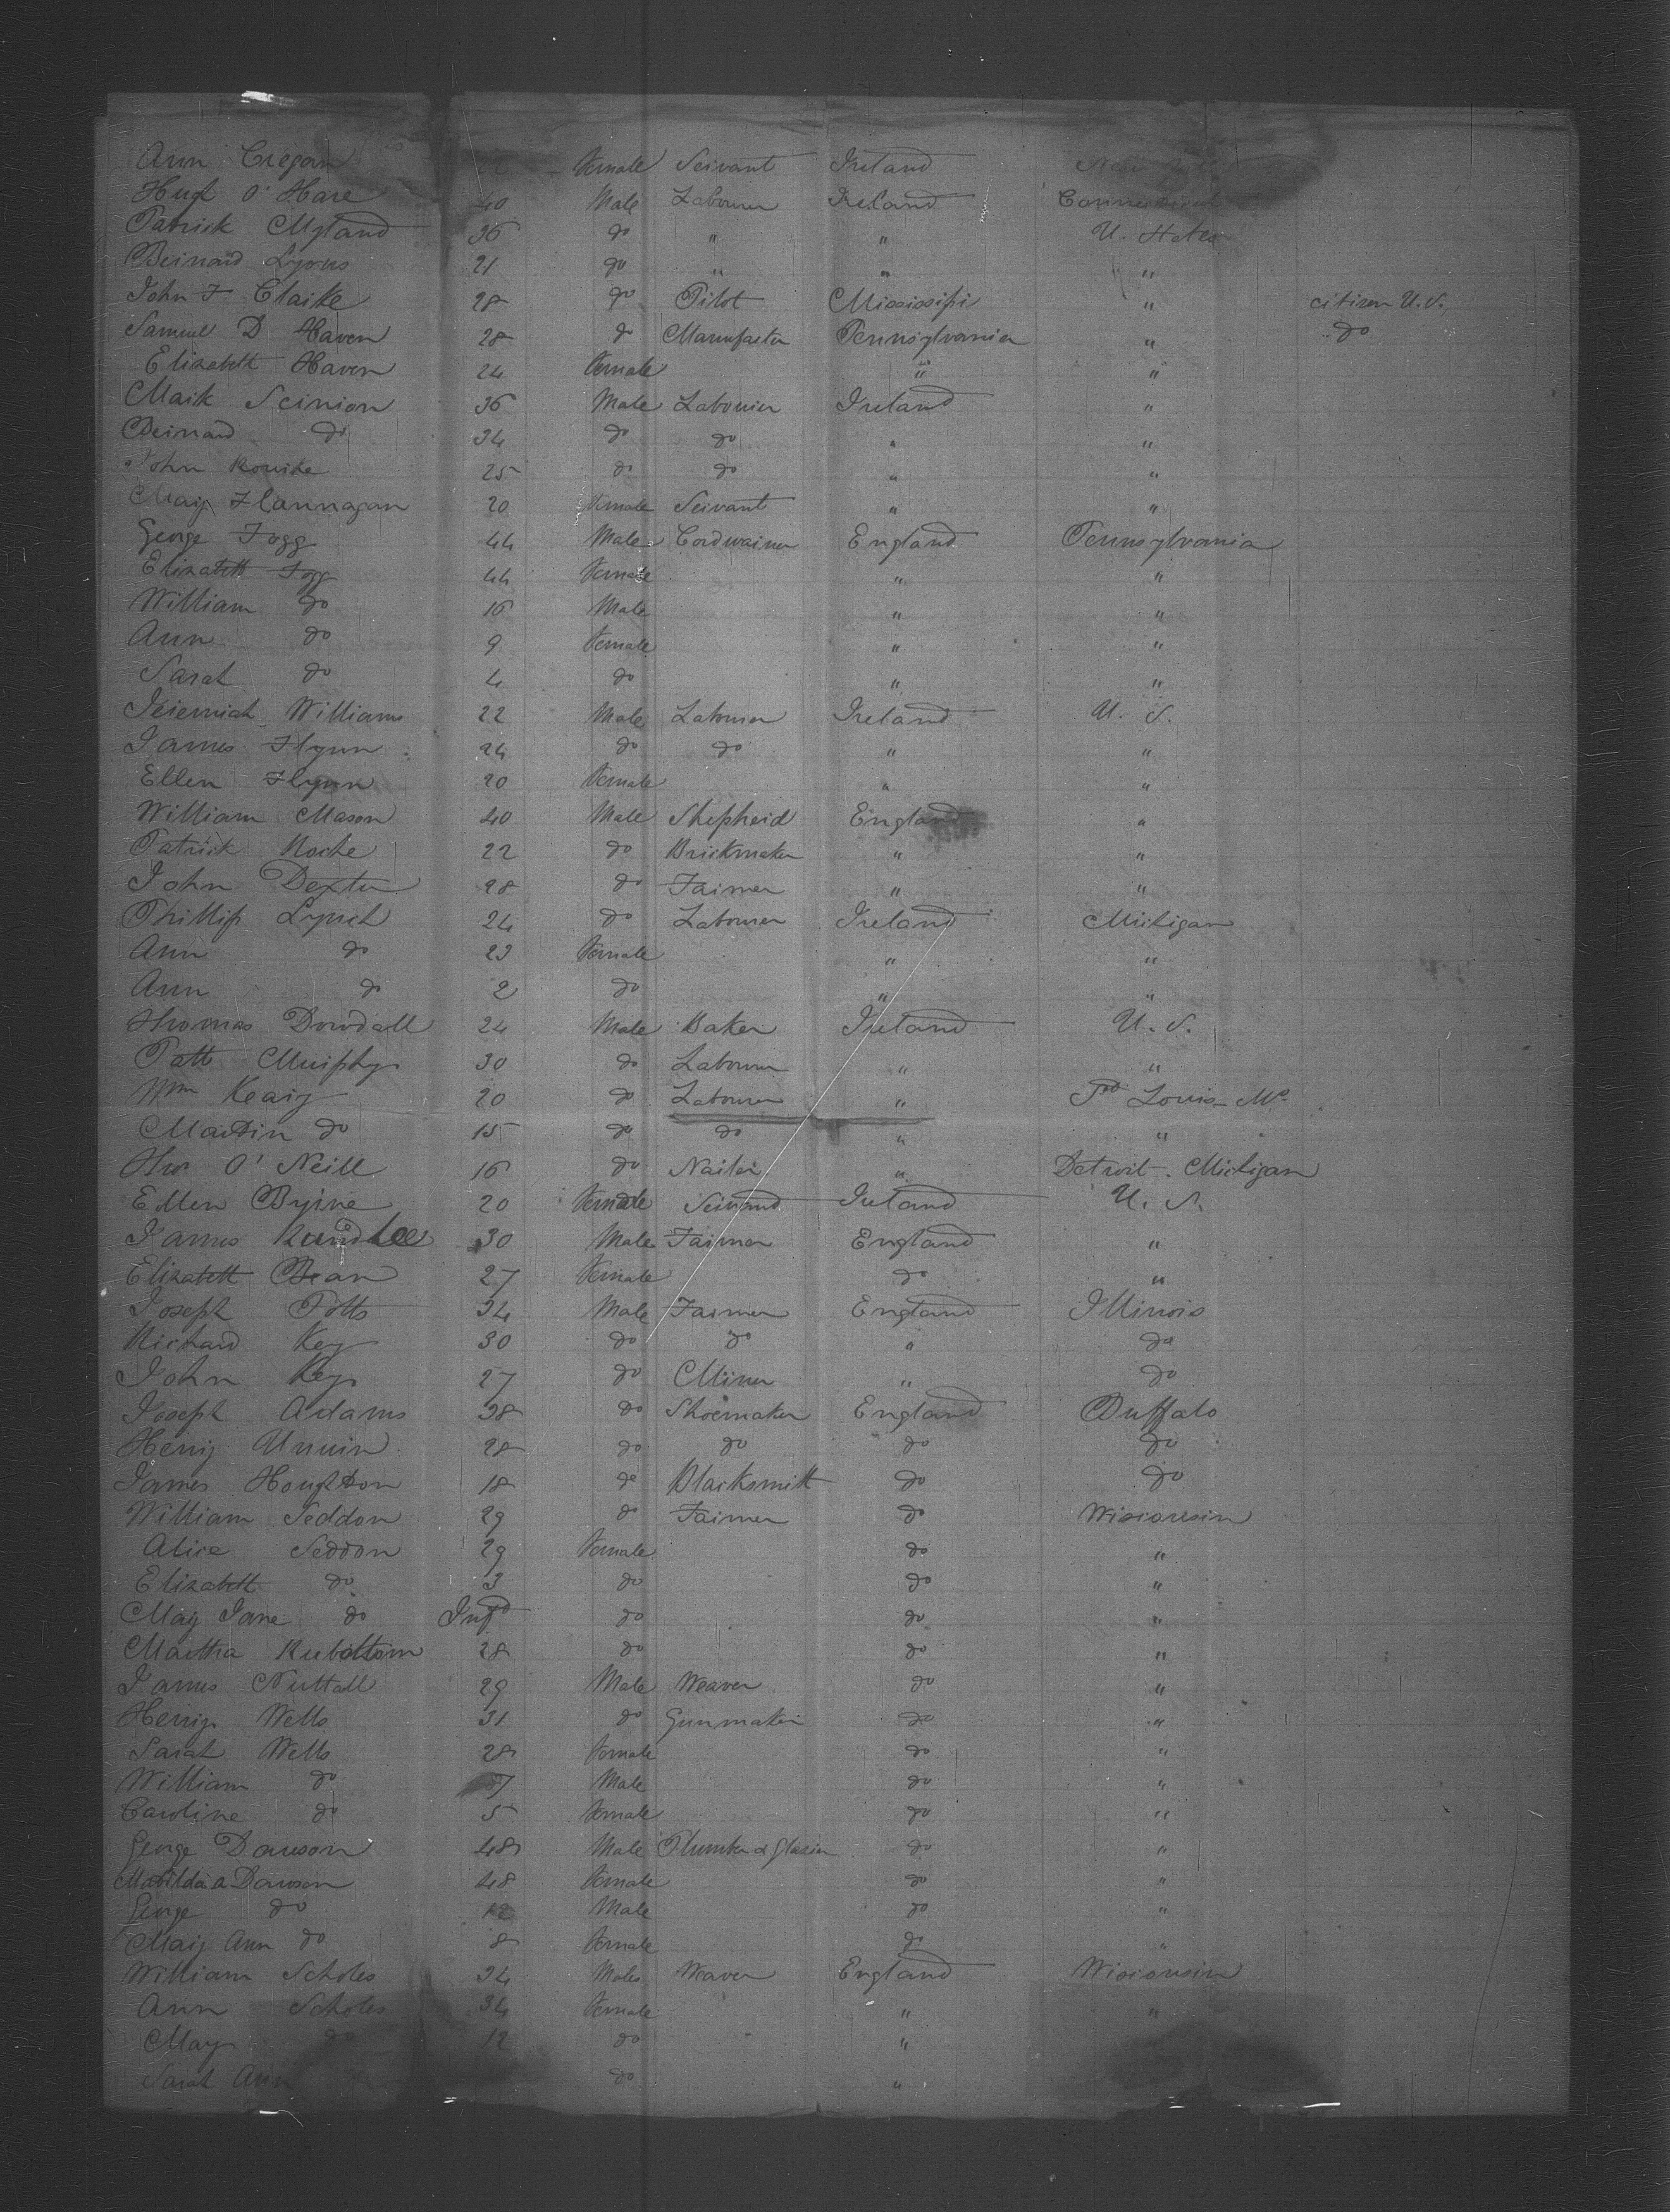 Ann Cregan Female Servant Ireland New York
Hugh O'Hare 40 Male Labourer Ireland Connecticut
Patrick Myland 36 do " " U. States
Bernard Lyons 21 do " " "
John F Clarke 28 do Pilot Mississipi " citizen U.S.
Samuel D Haven 28 do Manufacter Pennsylvania " do
Elizabeth Haven 24 Female " "
Mark Scinion 36 Male Labourer Ireland "
Bernard do 34 do do " "
John Rourke 25 do do " "
Mary Flannagan 20 Female Servant " "
George Fogg 44 Male Cordwainer England Pennsylvania
Elizabeth Fogg 44 Female " "
William do 16 Male " "
Ann do 9 Female " "
Sarah do 4 do " "
Jeremiah Williams 22 Male Labourer Ireland U. S.
James Flynn 24 do do " "
Ellen Flynn 20 Female " "
William Mason 40 Male Shepherd England "
Patrick Roche 22 do Brickmaker " "
John Dexter 28 do Farmer " "
Phillip Lynch 24 do Labourer Ireland Michigan
Ann do 23 Female " "
Ann do 2 do " "
Thomas Dowdall 24 Male Baker Ireland U. S.
Patt Murphy 30 do Labourer " "
Wm Keary 20 do Labourer " St Louis Mo
Martin do 15 do do " "
Thos O'Neill 16 do Nailer " Detroit. Michigan
Ellen Byrne 20 Female Servant Ireland U. S.
James Rundlee 30 Male Farmer England "
Elizabeth Bean 27 Female do "
Joseph Potts 34 Male Farmer England Illinois
Richard Key 30 do do " do
John Key 27 do Miner " do
Joseph Adams 38 do Shoemaker England Buffalo
Henry Unwin 28 do do do do
James Houghton 18 do Blacksmith do do
William Seddon 29 do Farmer do Wisconsin
Alice Seddon 29 Female do "
Elizabeth do 3 do do "
Mary Jane do Inft do do "
Martha Rubottom 28 do do "
James Nuttall 29 Male Weaver do "
Henry Wells 31 do Gunmaker do "
Sarah Wells 28 Female do "
William do 7 Male do "
Caroline do 5 Female do "
George Dawson 48 Male Plumber & Glazier do "
Matilda a Dawson 48 Female do "
George do 12 Male do "
Mary Ann do 8 Female do "
William Scholes 34 Male Weaver England Wisconsin
Ann Scholes 34 Female " "
Mary do 12 do "
Sarah Ann do "